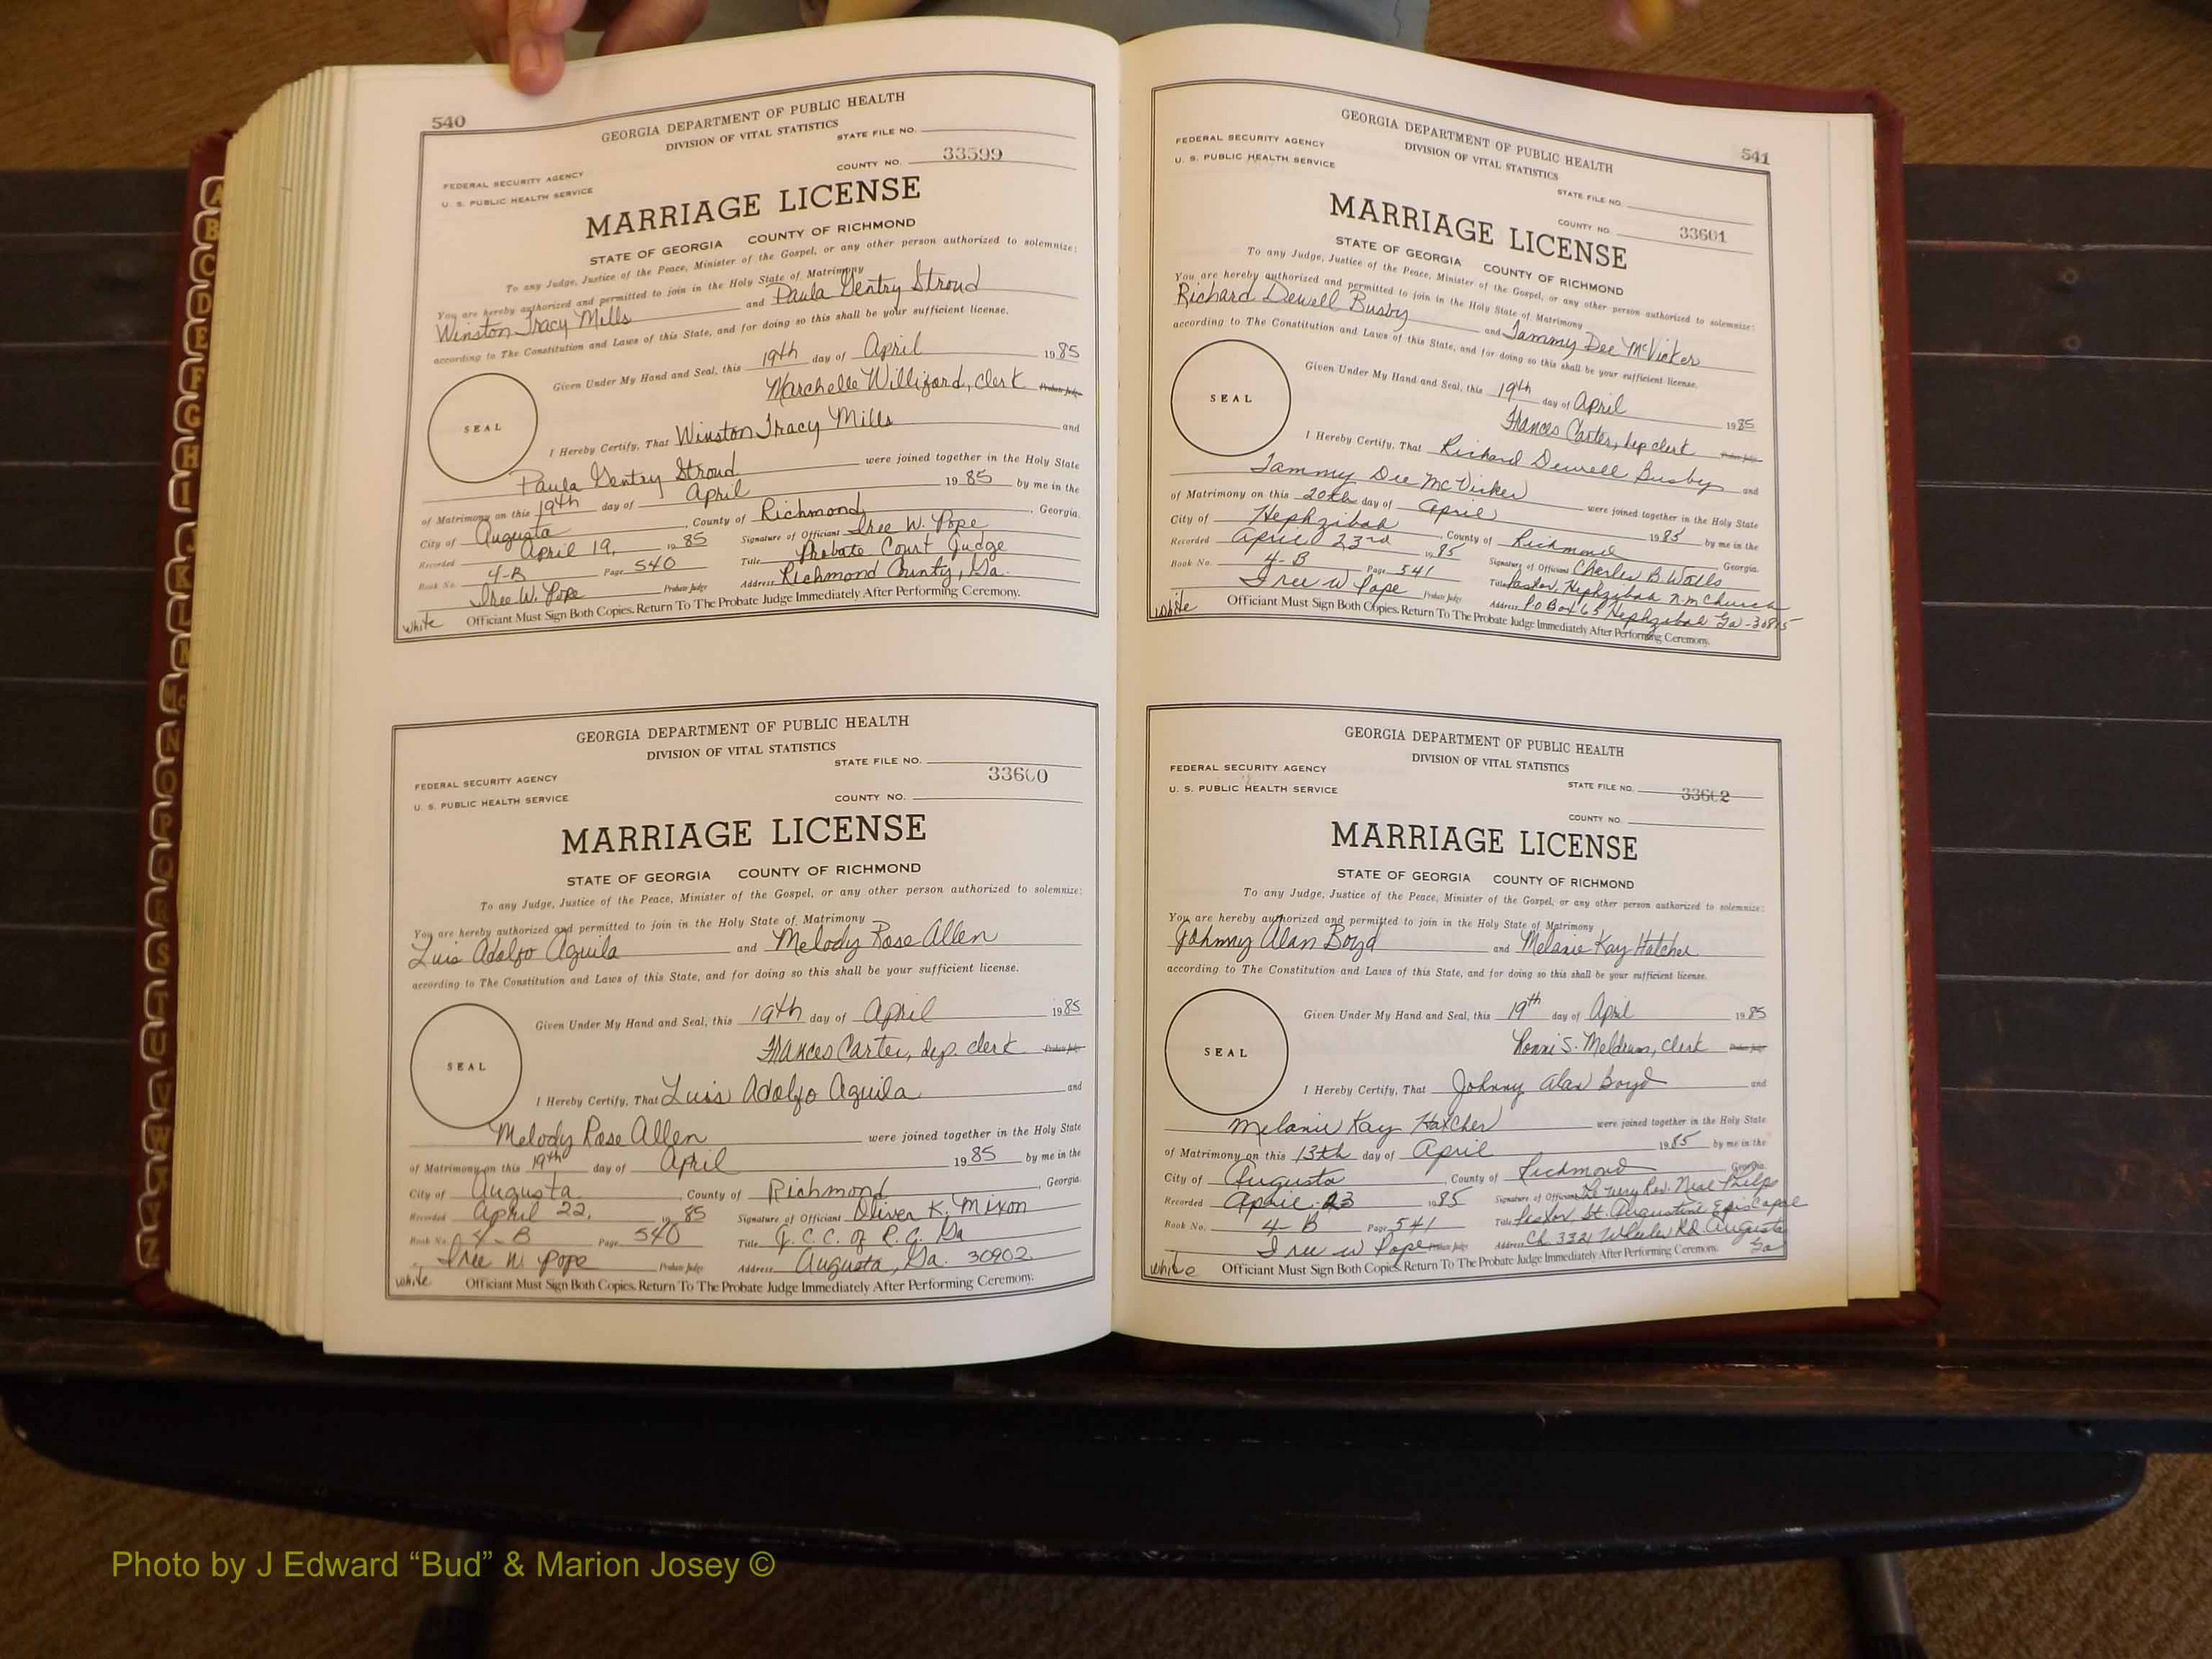 540
GEORGIA DEPARTMENT OF PUBLIC HEALTH
DIVISION OF VITAL STATISTICS
STATE FILE NO.
COUNTY NO. 33599
FEDERAL SECURITY AGENCY
U. S. PUBLIC HEALTH SERVICE
MARRIAGE LICENSE
STATE OF GEORGIA COUNTY OF RICHMOND
To any Judge, Justice of the Peace, Minister of the Gospel, or any other person authorized to solemnize:
You are hereby authorized and permitted to join in the Holy State of Matrimony
Winston Tracy Mills and Paula Gentry Stroud
according to The Constitution and Laws of this State, and for doing so this shall be your sufficient license.
Given Under My Hand and Seal, this 19th day of April 1985
Marchelle Williford, clerk Probate Judge
SEAL
I Hereby Certify, That Winston Tracy Mills and
Paula Gentry Stroud were joined together in the Holy State
of Matrimony on this 19th day of April 1985 by me in the
City of Augusta, County of Richmond, Georgia.
Recorded April 19, 1985 Signature of Officiant Iree W. Pope
Book No. 4-B Page 540 Title Probate Court Judge
Iree W. Pope Probate Judge Address Richmond County, Ga.
White Officiant Must Sign Both Copies. Return To The Probate Judge Immediately After Performing Ceremony.
GEORGIA DEPARTMENT OF PUBLIC HEALTH
DIVISION OF VITAL STATISTICS
STATE FILE NO.
33600
FEDERAL SECURITY AGENCY
U. S. PUBLIC HEALTH SERVICE
COUNTY NO.
MARRIAGE LICENSE
STATE OF GEORGIA COUNTY OF RICHMOND
To any Judge, Justice of the Peace, Minister of the Gospel, or any other person authorized to solemnize:
You are hereby authorized and permitted to join in the Holy State of Matrimony
Luis Adolfo Aguila and Melody Rose Allen
according to The Constitution and Laws of this State, and for doing so this shall be your sufficient license.
Given Under My Hand and Seal, this 19th day of April 1985
Frances Carter, dep. clerk Probate Judge
SEAL
I Hereby Certify, That Luis Adolfo Aguila and
Melody Rose Allen were joined together in the Holy State
of Matrimony on this 19th day of April 1985 by me in the
City of Augusta, County of Richmond, Georgia.
Recorded April 22, 1985 Signature of Officiant Oliver K. Mixon
Book No. 4-B Page 540 Title J. C. C. of R. C. Ga
Iree W. Pope Probate Judge Address Augusta, Ga. 30902
White Officiant Must Sign Both Copies. Return To The Probate Judge Immediately After Performing Ceremony.
541
GEORGIA DEPARTMENT OF PUBLIC HEALTH
DIVISION OF VITAL STATISTICS
FEDERAL SECURITY AGENCY
U. S. PUBLIC HEALTH SERVICE
STATE FILE NO.
COUNTY NO. 33601
MARRIAGE LICENSE
STATE OF GEORGIA COUNTY OF RICHMOND
To any Judge, Justice of the Peace, Minister of the Gospel, or any other person authorized to solemnize:
You are hereby authorized and permitted to join in the Holy State of Matrimony
Richard Dewell Busby and Tammy Dee McVicker
according to The Constitution and Laws of this State, and for doing so this shall be your sufficient license.
Given Under My Hand and Seal, this 19th day of April 1985
Frances Carter, dep clerk Probate Judge
SEAL
I Hereby Certify, That Richard Dewell Busby and
Tammy Dee McVicker were joined together in the Holy State
of Matrimony on this 20th day of April 1985 by me in the
City of Hephzibah, County of Richmond Georgia.
Recorded April 23rd 1985 Signature of Officiant Charles B. Walls
Book No. 4-B Page 541 Title Pastor, Hephzibah U.M Church
Iree W Pope Probate Judge Address PO Box 65 Hephzibah Ga-30815
White Officiant Must Sign Both Copies. Return To The Probate Judge Immediately After Performing Ceremony.
GEORGIA DEPARTMENT OF PUBLIC HEALTH
DIVISION OF VITAL STATISTICS
FEDERAL SECURITY AGENCY
U. S. PUBLIC HEALTH SERVICE
STATE FILE NO. 33602
COUNTY NO.
MARRIAGE LICENSE
STATE OF GEORGIA COUNTY OF RICHMOND
To any Judge, Justice of the Peace, Minister of the Gospel, or any other person authorized to solemnize:
You are hereby authorized and permitted to join in the Holy State of Matrimony
Johnny Alan Boyd and Melanie Kay Hatcher
according to The Constitution and Laws of this State, and for doing so this shall be your sufficient license.
Given Under My Hand and Seal, this 19th day of April 1985
S. Meldrum, clerk Probate Judge
SEAL
I Hereby Certify, That Johnny Alan Boyd and
Melanie Kay Hatcher were joined together in the Holy State
of Matrimony on this 13th day of April 1985 by me in the
City of Augusta, County of Richmond, Georgia.
Recorded April 23 1985 Signature of Officiant The Very Rev. Neal Phelps
Book No. 4-B Page 541 Title St. Augustine Episcopal
Iree W Pope Probate Judge Address Ch 3321 Wheeler Rd Augusta
Ga
White Officiant Must Sign Both Copies. Return To The Probate Judge Immediately After Performing Ceremony.
A
B
C
D
E
F
G
H
I
J
K
L
M
Mc
N
O
P
Q
R
S
T
U
V
W
Y
Z
Photo by J Edward “Bud” & Marion Josey ©